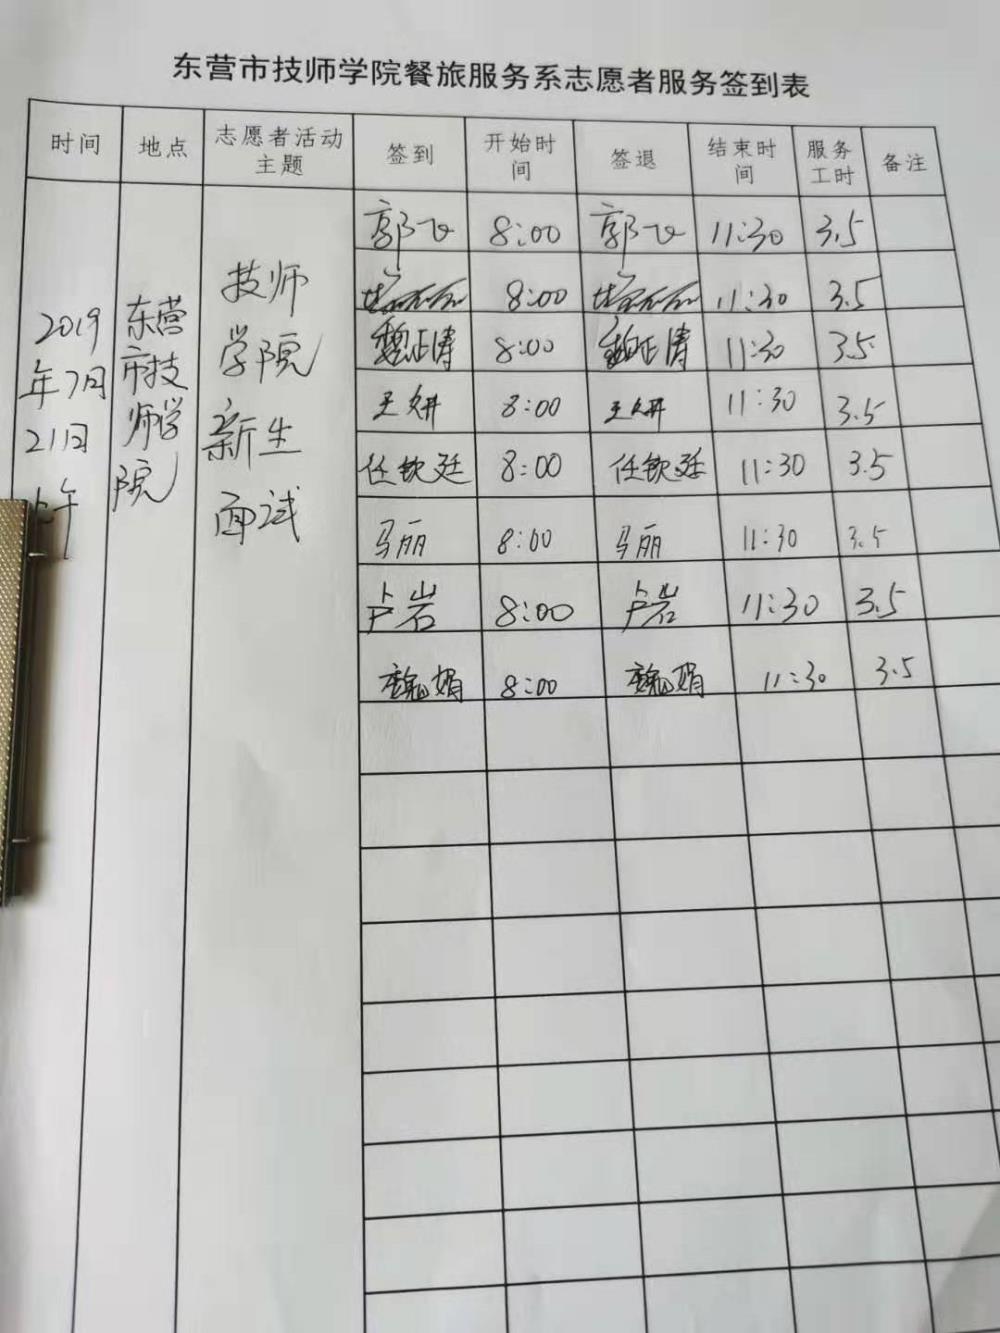 东营市技师学院餐旅服务系志愿者服务签到表
时间 地点 志愿者活动主题 签到 开始时间 签退 结束时间 服务工时 备注
2019年7月21日上午 东营市技师学院 技师学院新生面试
郭飞 8:00 郭飞 11:30 3.5
8:00 11:30 3.5
魏正涛 8:00 魏正涛 11:30 3.5
王妍 8:00 王妍 11:30 3.5
任钦廷 8:00 任钦廷 11:30 3.5
马丽 8:00 马丽 11:30 3.5
卢岩 8:00 卢岩 11:30 3.5
魏娟 8:00 魏娟 11:30 3.5